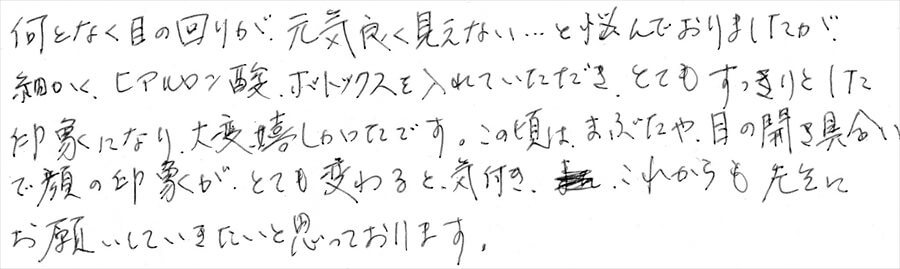 何となく目の回りが、元気良く見えない…と悩んでおりましたが、
細かく、ヒアルロン酸、ボトックスを入れていただき、とてもすっきりとした
印象になり、大変嬉しかったです。この頃は、まぶたや、目の開き具合い
で顔の印象が、とても変わると、気付き、これからも先生に
お願いしていきたいと思っております。